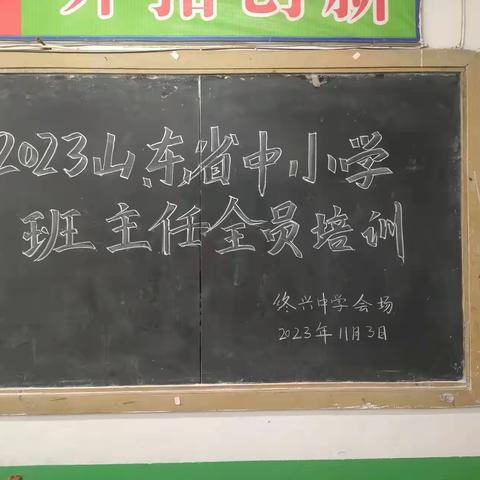 开拓创新
2023山东省中小学
班主任全员培训
终兴中学会场
2023年11月3日